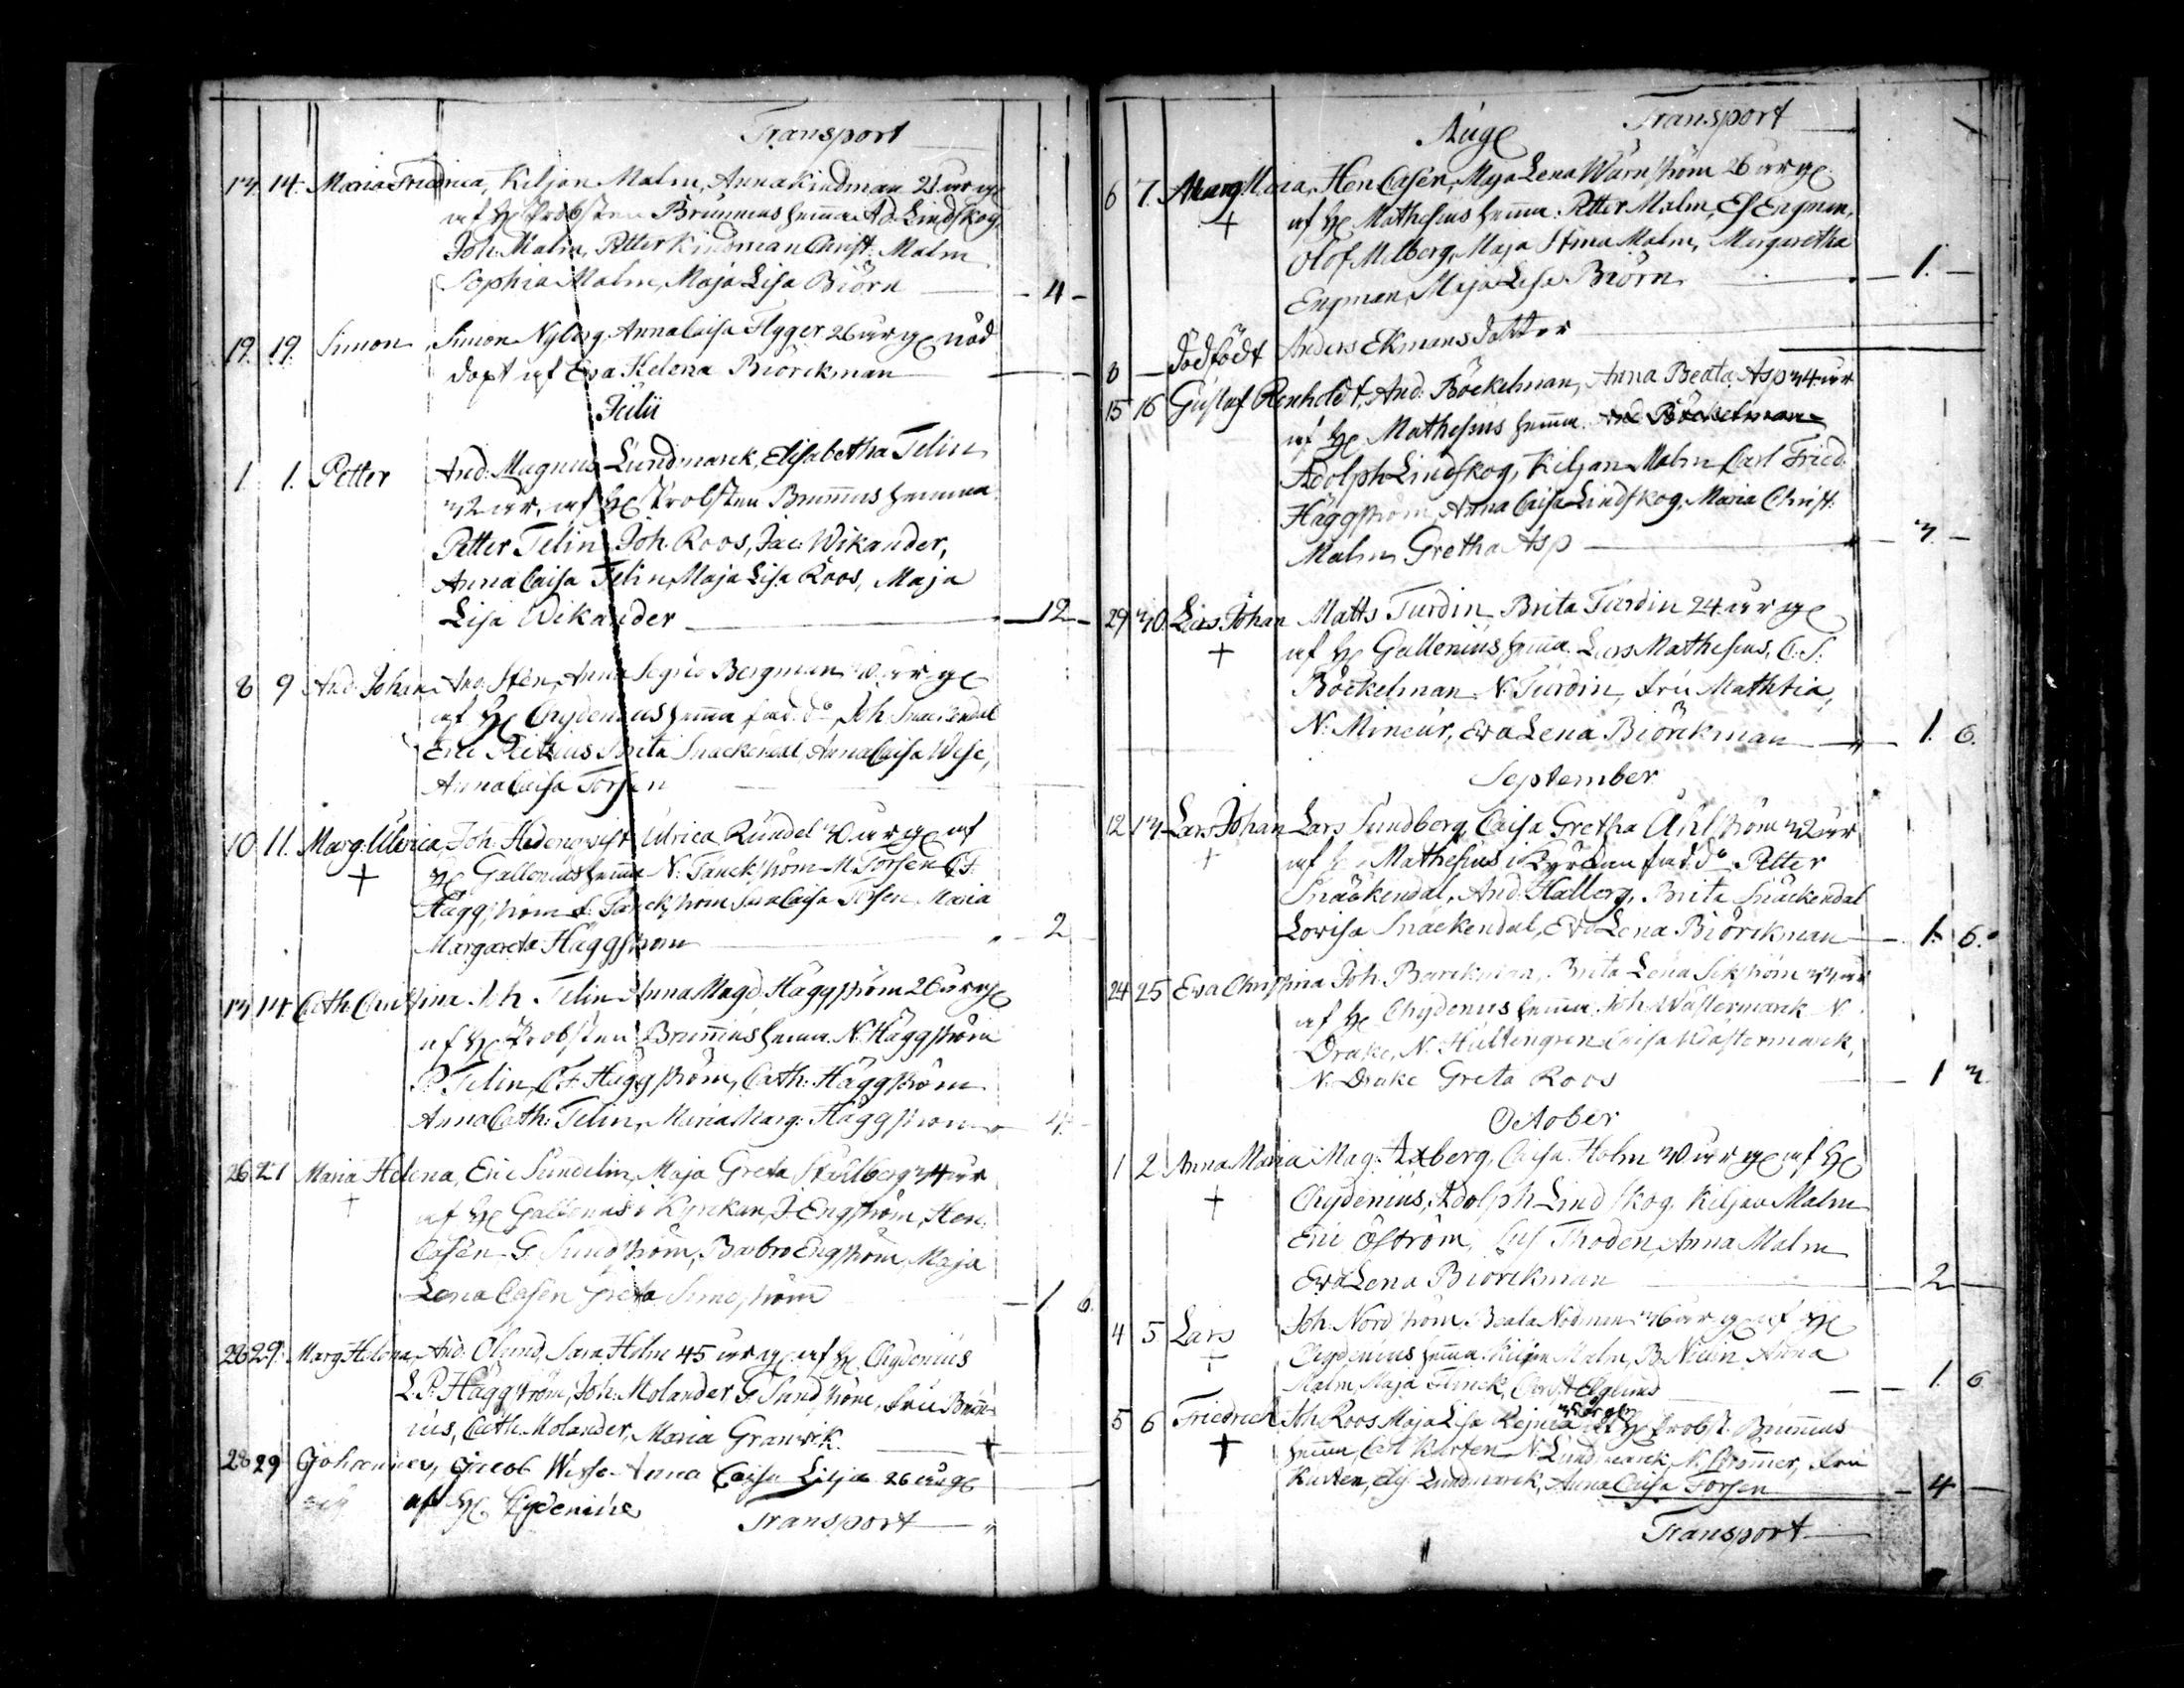 Transport
13. 14. Maria Friedrica, Kiljan Malm, Anna Kindman 21 år g
af H Probsten Brunnius hemma Ad. Lindskog,
Joh. Malm, Petter Kindman Christ. Malm
Sophia Malm, Maja Lisa Biörn — 4 —
19. 19. Simon Simon Nyberg Anna Caisa Flygger 26 år g nöd
döpt af Eva Helena Biörckman
Julii
1. 1. Petter And. Magnus Lundmarck, Elisabetha Telin
32 år, af H Probsten Brunnius hemma
Petter Telin, Joh. Roos, Jac. Wikander,
Anna Caisa Telin, Maja Lisa Roos, Maja
Lisa Wikander — 12 —
8 9 And. Johan And. Stén, Anna Bergman 30 år g
af H Chydenius hemma fad. do Joh. Snäckendal
Eric Brita Snäckendal, Anna Caisa
Anna Caisa Forsén
10 11. Marg. Ulrica, Joh. Hedenqvist Ulrica Rundel 30 år g af
+ H Gallenius hemma N. Tanckström M. Forsén C. F.
Häggström Tanckström Caisa Forsén, Maria
Margareta Häggström — 2
13 14. Cath. Christina Joh. Telin Anna Magd. Häggström 26 år g
af H Probsten Brunnius hemma. N. Häggström
P. Telin, C. F. Häggström, Cath: Häggström
Anna Cath: Telin, Maria Marg: Häggström — 4 —
26 27 Maria Helena, Eric Sundelin, Maja Greta Stålberg 34 år
+ af H Gallenius i Kyrckan, J. Engström, Hen.
Casén G. Sundström, Barbro Engström, Maja
Lena Casén Greta Sundström — 1 6.
28 29. Marg. Helena, And. Ölund, Sara Holm 45 år g af H Chydenius
L. P. Häggström, Joh. Molander G. Sundström, Fru Brun-
nius, Cath. Molander, Maria Granvik. +
28 29 Johannes, Jacob Anna Caisa Lilja 26 år g
af H Cydenius
Transport
Transport
Aug
6 7. Marg. Maria, Hen. Casén, Maja Lena Wärnström 26 år g
+ af H Mathesius hemma. Petter Malm, Es. Engman,
Olof Melberg, Maja Stina Malm, Margaretha
Engman, Maja Lisa Biörn — 1. —
8 — dödfödt Anders Ekmans dotter
15 16 Gustaf Renholdt, And. Böckelman, Anna Beata Asp 34 år
af H Mathesius hemma. And Böckelman
Adolph Lindskog, Kiljan Malm Carl Fried.
Häggström, Anna Caisa Lindskog, Maria Christ.
Malm Gretha Asp — 3. —
29 30. Lars Johan Matts Turdin Brita Turdin 24 år g
+ af H Gallenius hemma. Lars Mathesius, C. S.
Böckelman N. Turdin, Fru
N. Mineur, Eva Lena Biörckman — 1. 6.
September
12 13 Lars Johan Lars Sundberg, Caisa Gretha Åhlström 32 år
+ af H Mathesius i Kyrckan fad. do Petter
Snäckendal, And. Hallberg, Brita Snäckendal
Lovisa Snäckendal, Eva Lena Biörckman — 1. 6.
24 25 Eva Christina Joh. Barckman, Brita Lena 33 år
af H Chydenius hemma. Joh. Wästermarck N.
Drake, N. Hultengren Caisa Wästermarck,
N. Drake Greta Roos — 1 3.
October
1 2 Anna Maria Mag. Axberg, Caisa Holm 30 år g af H
+ Chydenius, Adolph Lindskog, Kiljan Malm
Eric Öström, Thoden, Anna Malm
Eva Lena Biörckman — 2 —
4 5 Lars Joh. Nordström, Beata Nodman 36 år g af H
+ Chydenius hemma. Kiljan Malm, Anna
Malm, Maja Flinck, — 1. 6
5 6 Friedrich Joh. Roos Maja Lisa af H Probst. Brunnius
+ hemma, Carl Karsten N. Lundmarck, N. Strömmer, Fru
Karsten, Elis. Lundmarck, Anna Caisa Forsén — 4 —
Transport